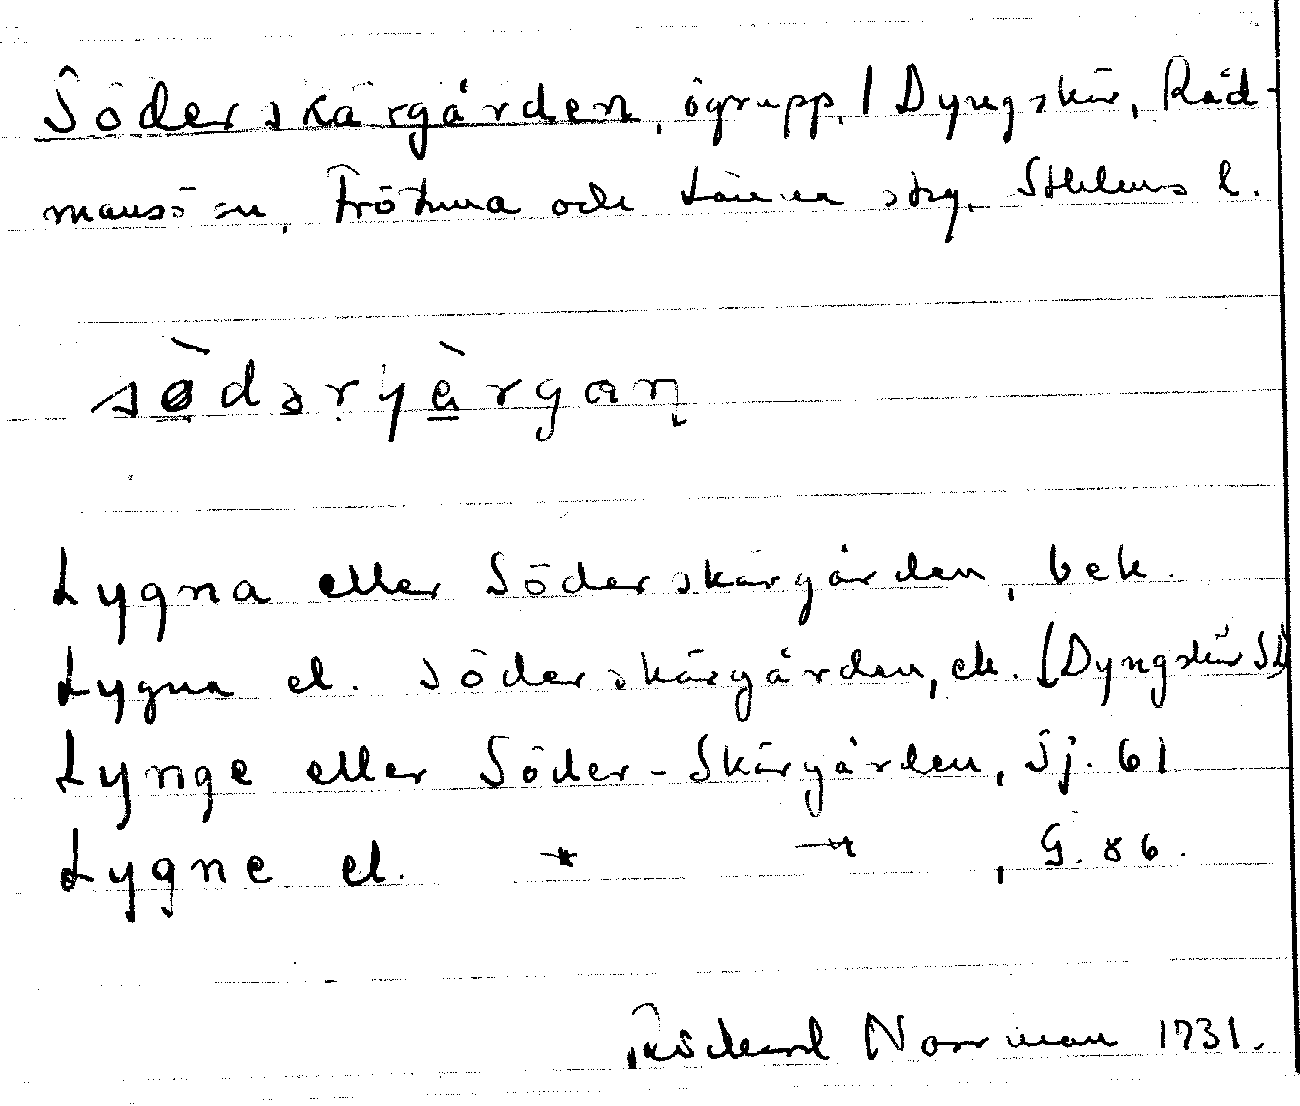 Söderskärgården, ögrupp, / Dyngskär, Råd-
mansö sn, Frötuna och Länna skg, Sthlms l.
sø̀dərɥä̀rgaɳ
Lygna eller Söderskärgården, bek.
Lygna el. Söderskärgården, ek. (Dyngskär Sd
Lynge eller Söder-Skärgården, Sj. 61
Lygne el. —"— —"—, G. 86.
Norrman 1931.